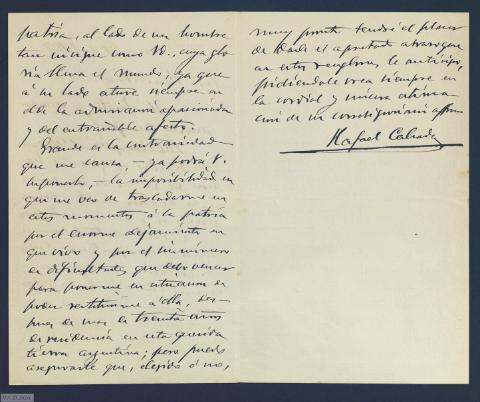 patria, al lado de un hombre
tan insigne como Vd., cuya glo-
ria llena el mundo, ya que
á su lado estuve siempre en
alas de la admiración apasionada
y del entrañable afecto.
Grande es la contrariedad
que me causa, – ya podrá V.
suponerlo, – la imposibilidad en
que me veo de trasladarme en
estos momentos á la patria
por el enorme alejamiento en
que vivo y por el sinnúmero
de dificultades que debo vencer
para ponerme en situación de
poder restituirme á ella, des-
pues de mas de treinta años
de residencia en esta querida
tierra argentina; pero puedo
asegurarle que, elegido ó no,
muy pronto tendré el placer
de darle el apretado abrazo que
en estos renglones le anticipo,
pidiéndole crea siempre en
la cordial y sincera estima-
ción de su correligionario affmo
Rafael Calzada